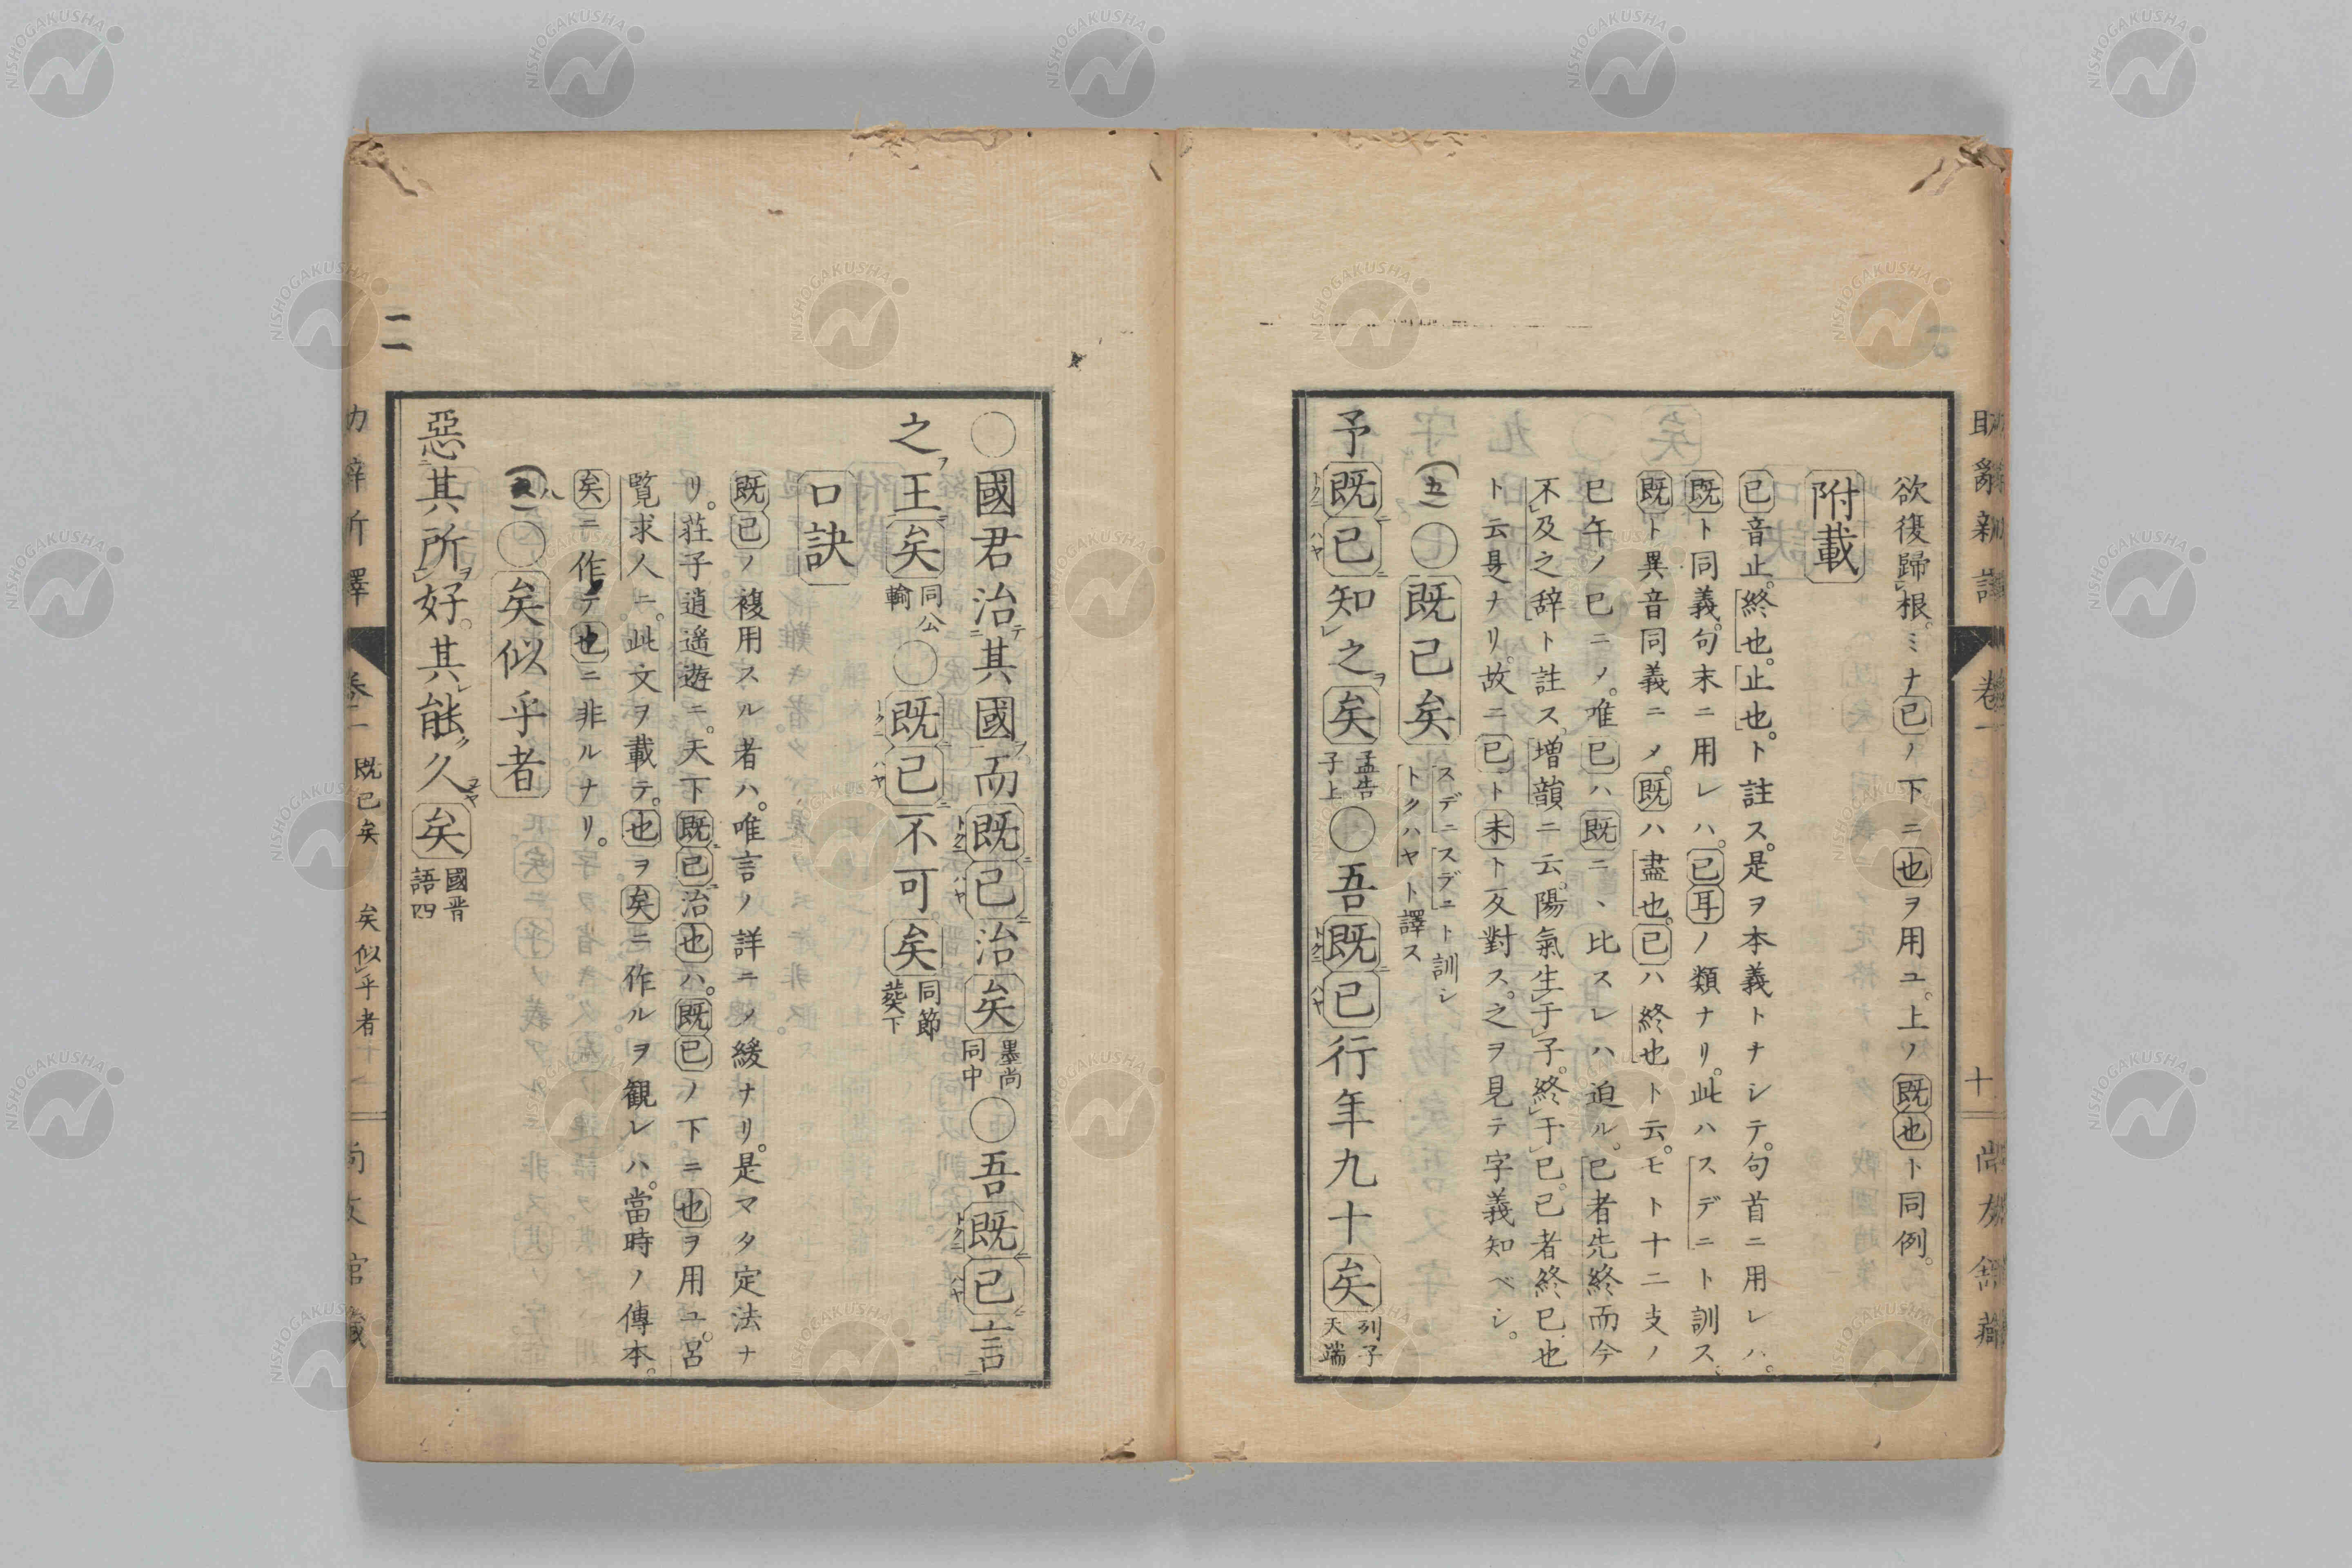 欲復歸根。ミナ已ノ下ニ也ヲ用ユ。上ノ既也ト同例。
附載
已音止。終也。止也。ト註ス。是ヲ本義トナシテ。句首ニ用レハ。
既ト同義。句末ニ用レハ。已耳ノ類ナリ。此ハスデニト訓ス
既ト異音同義ニメ。既ハ盡也。已ハ終也ト云。モト十二支ノ
巳午ノ巳ニノ。唯已ハ既ニヽ比スレハ迫ル。已者先終而今
不及之辞ト註ス。増韻ニ云。陽氣生于子。終于巳。巳者終已也
ト云是ナリ。故ニ已ト未ト反對ス。之ヲ見テ字義知ベシ。
(五)〇既已矣 スデニスデニト訓シ
トクハヤト譯ス
予既已知之矣 孟告子上 〇吾既已行年九十矣 列子天端
〇國君治其國而既已治矣 墨尚同中 〇吾既已言
之王矣 同公輸 〇既已不可矣 同節葬下
口訣
既已ノ複用スル者ハ。唯言ノ詳ニノ緩ナリ。是マタ定法ナ
リ。莊子逍遙遊ニ。天下既已治也ハ。既已ノ下ニ也ヲ用ユ。呂
覧求人ニ。此文ヲ載テ。也ヲ矣ニ作ルヲ観レハ。當時ノ傳本。
矣ニ作テ也ニ非ルナリ。
〇矣似乎者
惡其所好。其能久矣 國晋語四
二
卷一 既已矣 矣似乎者
卷一 十